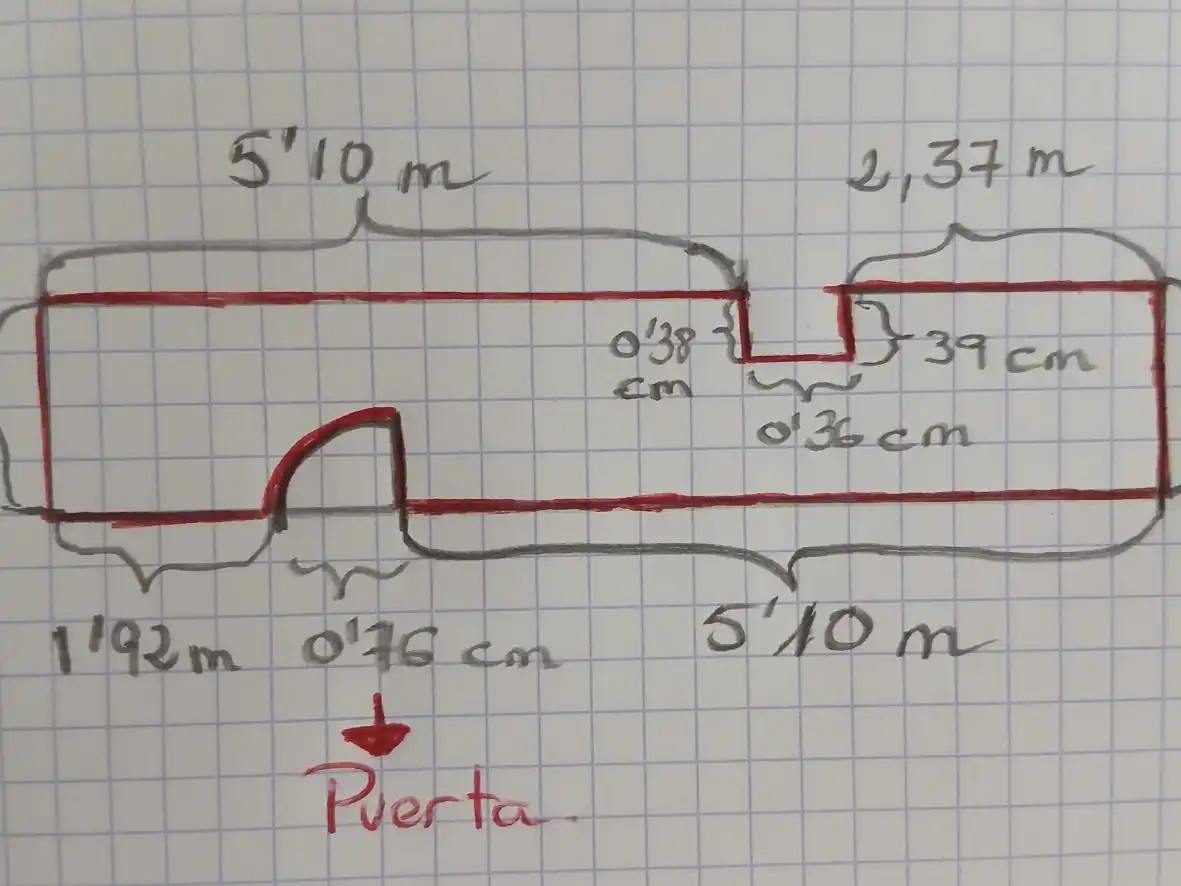 5'10 m
2,37 m
0'38
cm
39 cm
0'36 cm
1'92 m
0'76 cm
5'10 m
Puerta.